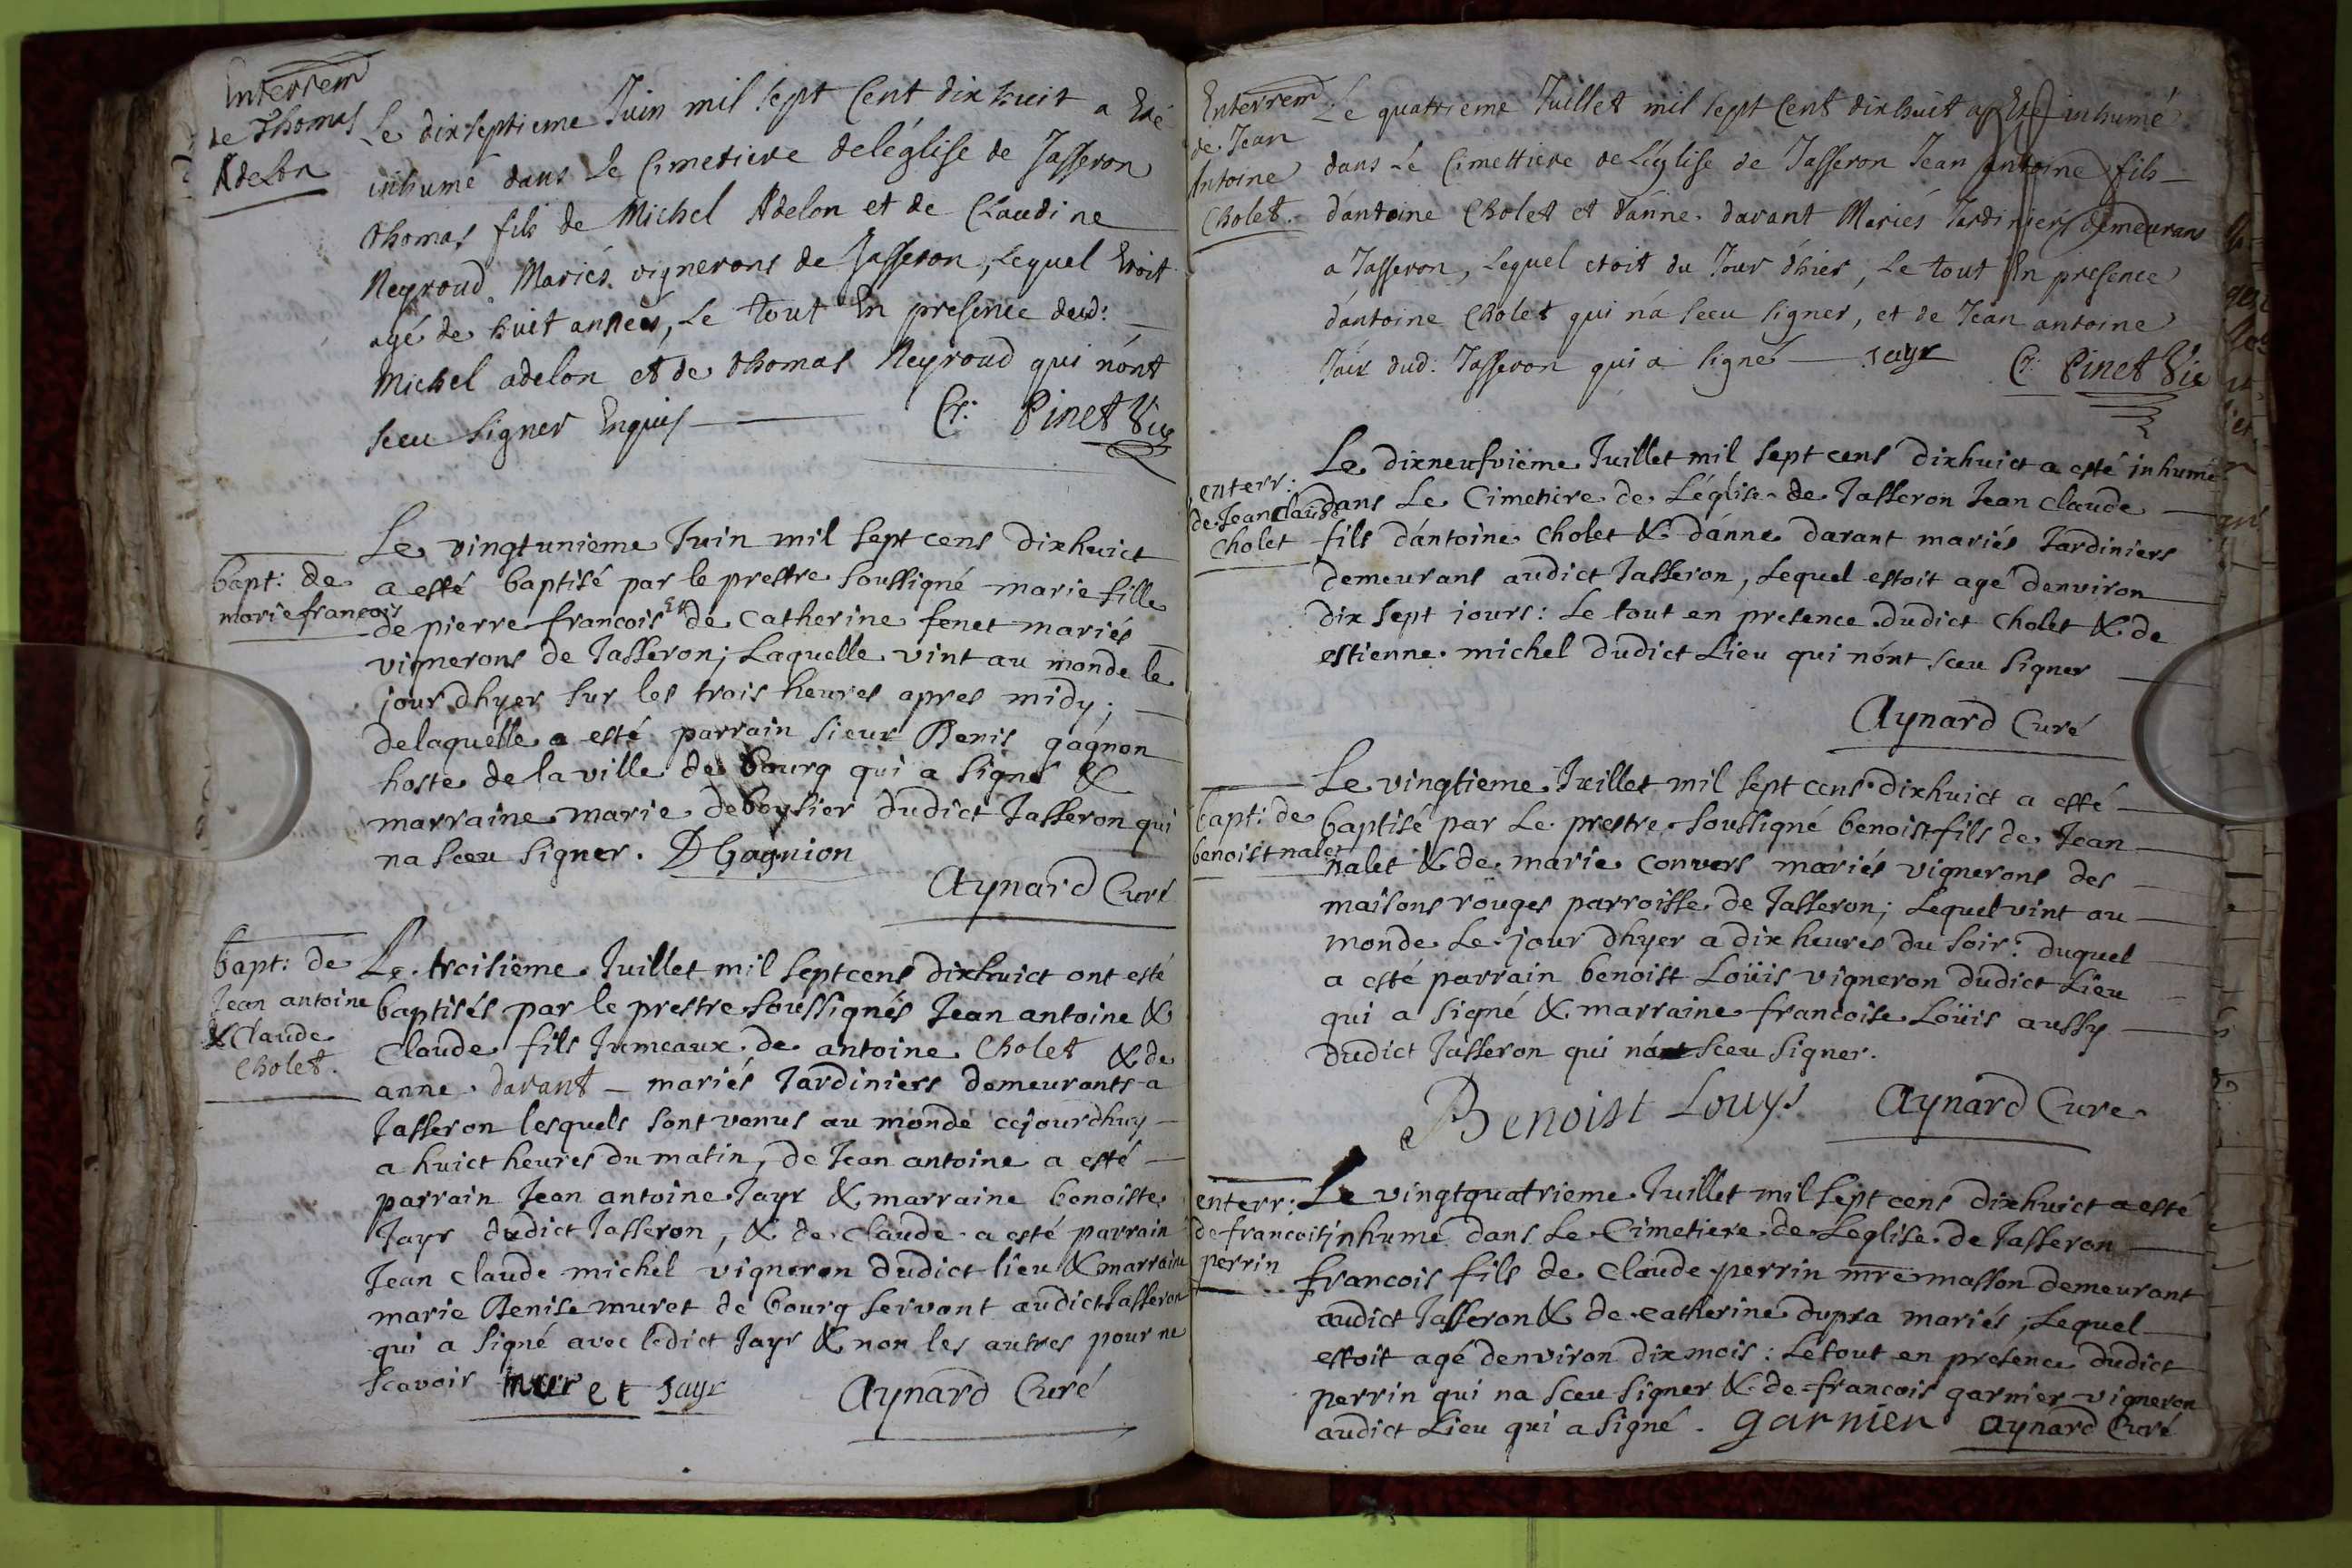 Enterrem
de Thomas
Adelon
Le dixseptieme Juin mil sept Cent dix huit a Eté
inhumé dans Le Cimetiere deléglise de Jasseron
thomas fils de Michel Adelon et de Claudine
Neyroud Mariés vignerons de Jasseron, Lequel Etoit
agé de huit années, Le tout En presence dud:
Michel adelon et de thomas Neyroud qui nónt
sceu signer Enquis
Cl: Pinet Vic
bapt: de
marie francois
Le vingtunieme Juin mil sept cens dixhuict
a esté baptisé par le prestre soussigné marie fille
de pierre francois Et de Catherine fenet mariés
vignerons de Jasseron; Laquelle vint au monde le
jour dhyer sur les trois heures apres midy;
delaquelle a esté parrain sieur Denis gagnon
hoste de la ville de bourg qui a signé &
marraine marie deboysier dudict Jasseron qui
na sceu signer. D Gagnion
Aynard Curé
bapt: de
Jean antoine
& Claude
Cholet.
Le troisieme Juillet mil septcens dixhuict ont esté
baptisés par le prestre soussignés Jean antoine &
Claude fils Jumeaux de antoine Cholet & de
anne darant mariés Jardiniers demeurants a
Jasseron lesquels sont venus au monde cejourdhuy
a huict heures du matin, de Jean antoine a esté
parrain Jean antoine Jayr & marraine benoiste
Jayr dudict Jasseron, & de Claude a esté parrain
Jean claude michel vigneron dudict lieu & marraine
marie Denise muret de bourg servant audict Jasseron
qui a signé avec ledict Jayr & non les autres pour ne
scavoir muret Jayr
Aynard Curé
Enterrem
de Jean
Antoine
Cholet.
Le quatrieme Juillet mil sept Cent dixhuit a Eté inhumé
dans Le Cimettiere de Léglise de Jasseron Jean antoine fils
dántoine Cholet et dánne darant Mariés Jardiniers demeurans
a Jasseron, Lequel etoit du Jour d'hier, Le tout En presence
dántoine Cholet qui ná sceu signer, et de Jean antoine
Jaÿr dud: Jasseron qui a signé Jayr
Cl: Pinet Vic
enterr:
de Jean claude
Cholet
Le dixneufvieme Juillet mil sept cens dixhuict a esté inhumé
dans Le Cimetiere de Léglise de Jasseron Jean Claude
fils dántoine Cholet & dánne darant mariés Jardiniers
demeurans audict Jasseron, Lequel estoit agé denviron
dix sept jours: Le tout en presence dudict Cholet & de
estienne michel dudict Lieu qui nónt sceu signer
Aynard Curé
bapt: de
benoist nalet
Le vingtieme Juillet mil sept cens dixhuict a esté
baptisé par Le prestre soussigné benoist fils de Jean
nalet & de marie convers mariés vignerons des
maisons rouges parroisse de Jasseron; Lequel vint au
monde Le jour dhyer a dix heures du soir: duquel
a esté parrain benoist Loüis vigneron dudict Lieu
qui a signé & marraine francoise Loüis aussy
dudict Jasseron qui ná sceu signer.
Benoist Louys Aynard Curé
enterr:
de francois
perrin
Le vingtquatrieme Juillet mil sept cens dixhuict a esté
inhumé dans Le Cimetiere de Leglise de Jasseron
francois fils de Claude perrin mre masson demeurant
audict Jasseron & de Catherine dupra mariés; Lequel
estoit agé denviron dix mois: Le tout en presence dudict
perrin qui na sceu signer & de francois garnier vigneron
audict Lieu qui a signé. garnier Aynard Curé